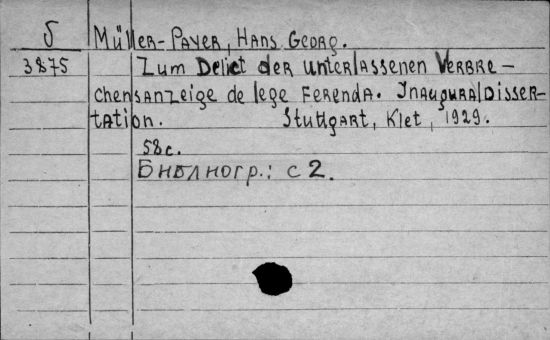 δ Müller-Payer, Hans Georg.
3875 Zum Delict der unterlassenen Verbre-
chensanzeige de lege ferenda. Inauguraldisser-
tation. Stuttgart, Klet, 1929.
58c.
Библиогр.: с 2.